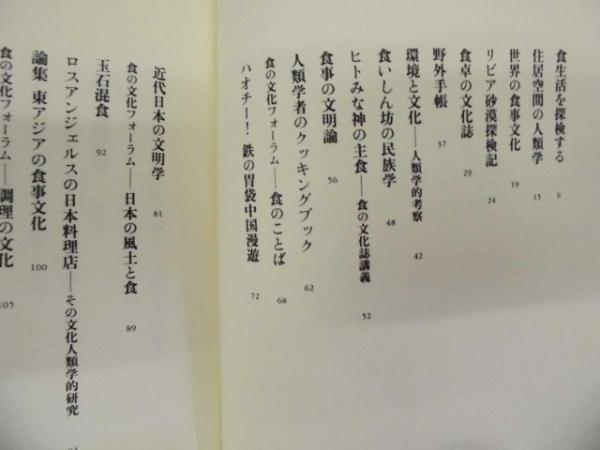 食生活を探検する 9
住居空間の人類学 15
世界の食事文化 19
リビア砂漠探検記 24
食卓の文化誌 29
野外手帳 37
環境と文化──人類学的考察 42
食いしん坊の民族学 48
ヒトみな神の主食──食の文化誌講義 52
食事の文明論 56
人類学者のクッキングブック 62
食の文化フォーラム──食のことば 68
ハオチー!・鉄の胃袋中国漫遊 72
近代日本の文明学 81
食の文化フォーラム──日本の風土と食 89
玉石混食 92
ロスアンジェルスの日本料理店──その文化人類学的研究
論集 東アジアの食事文化 100
食の文化フォーラム──調理の文化 105